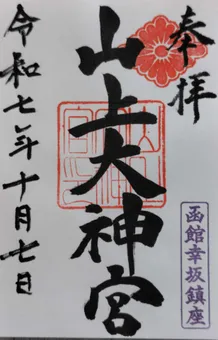 奉拝
山上大神宮
函館幸坂鎮座
令和七年十月七日